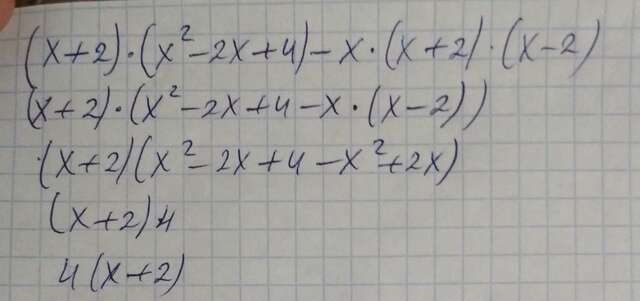 (x+2)·(x²-2x+4)-x·(x+2)·(x-2)
(x+2)·(x²-2x+4-x·(x-2))
(x+2)(x²-2x+4-x²+2x)
(x+2)4
4(x+2)